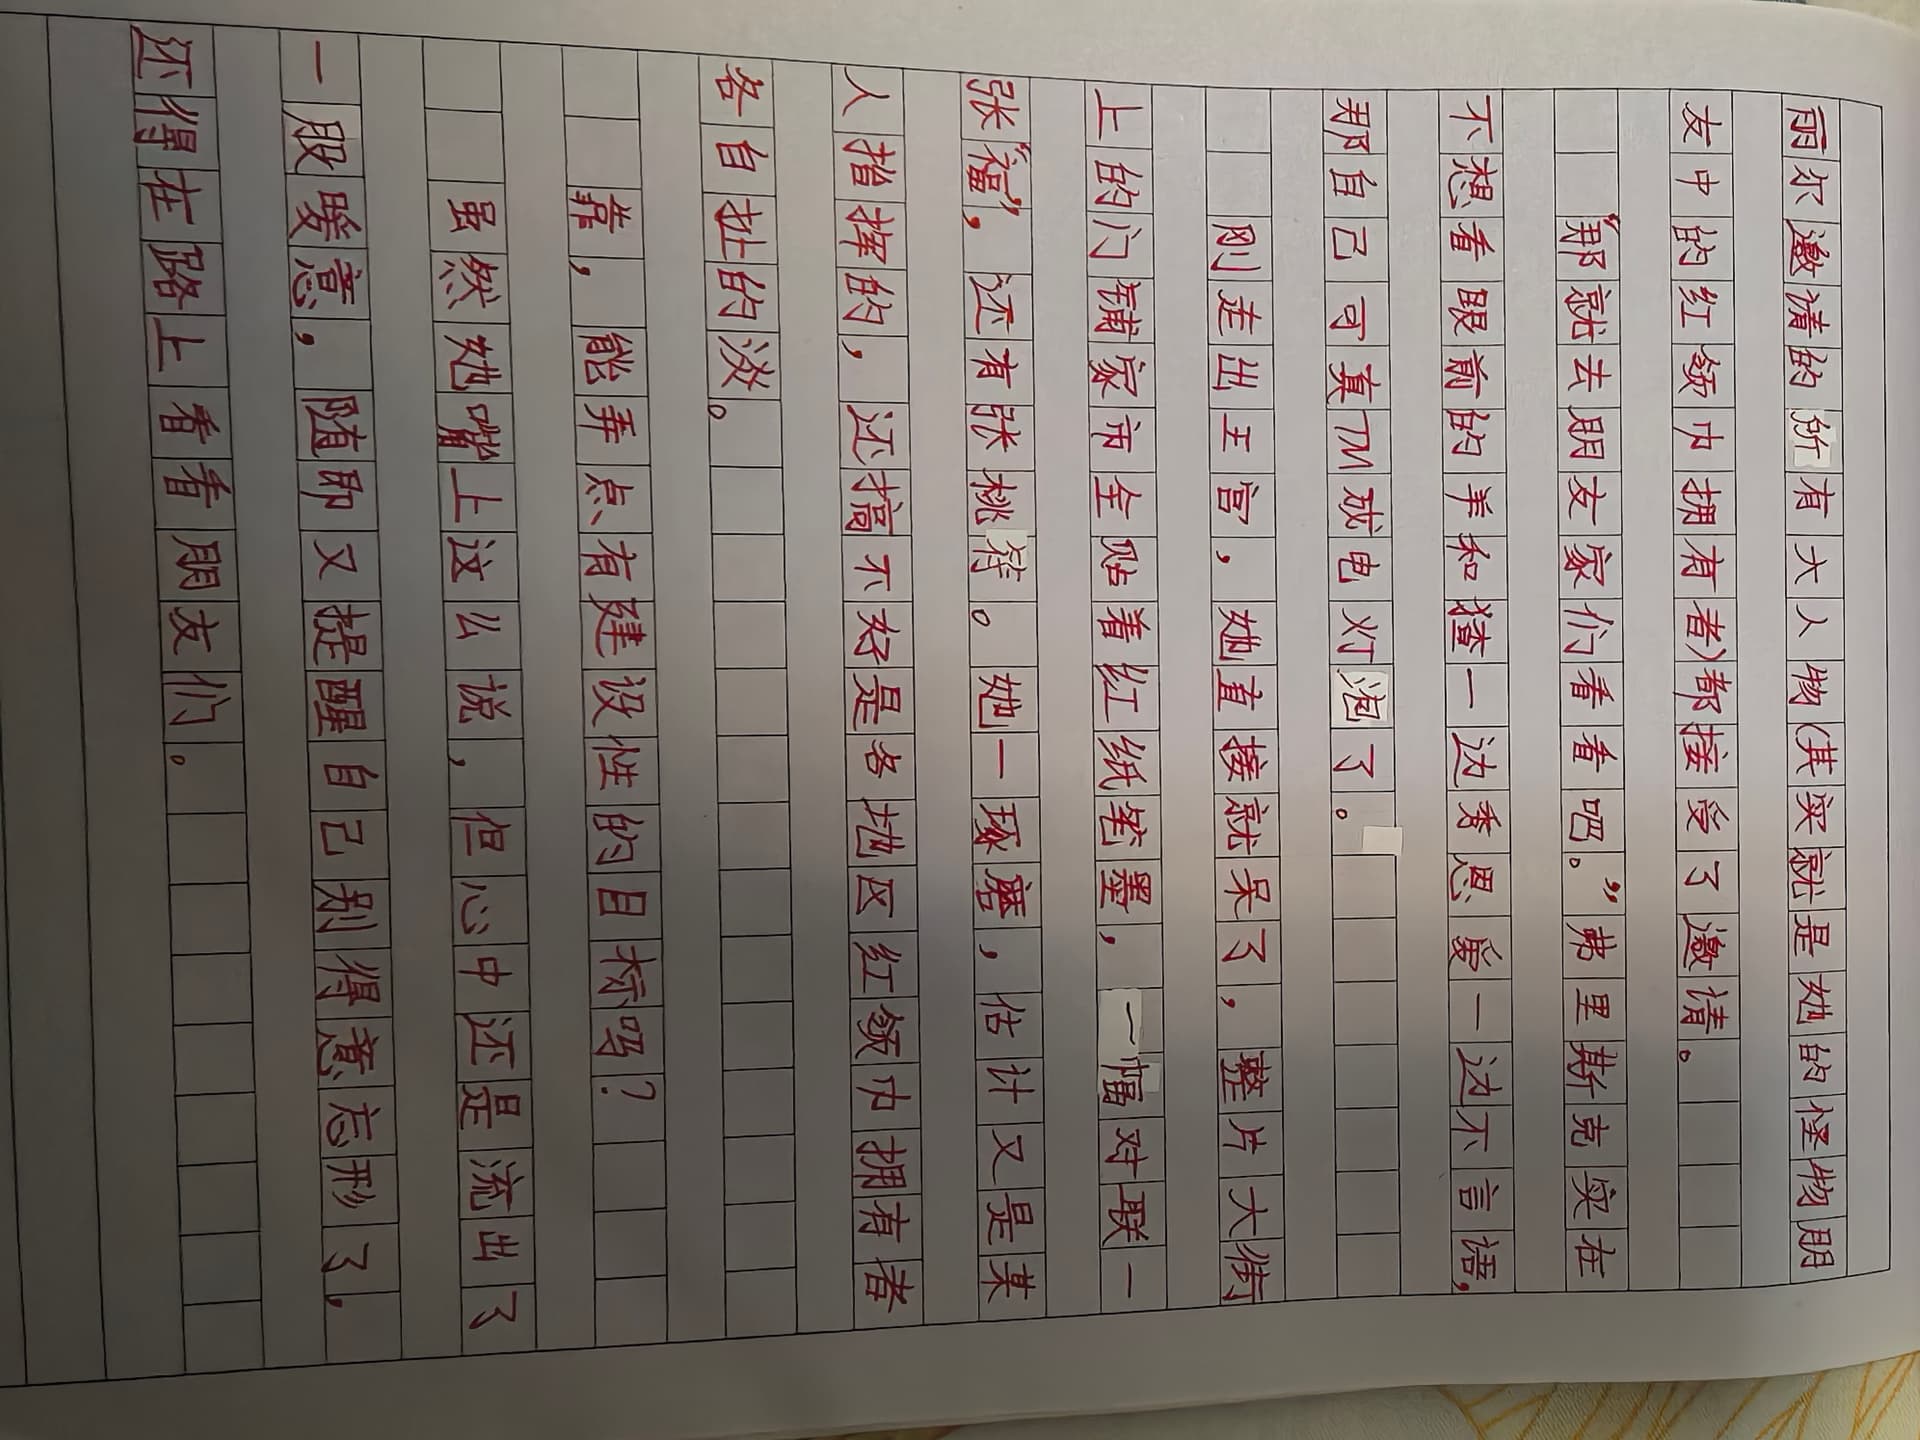 丽尔邀请的所有大人物(其实就是她的怪物朋
友中的红领巾拥有者)都接受了邀请。
“那就去朋友家们看看吧。”弗里斯克实在
不想看眼前的羊和猹一边秀恩爱一边不言语,
那自己可真TM成电灯泡了。
刚走出王宫,她直接就呆了,整片大街
上的门铺家市全贴着红纸笔墨,一幅对联一
张“福”,还有张桃符。她一琢磨,估计又是某
人指挥的,还搞不好是各地区红领巾拥有者
各自扯的淡。
靠,能弄点有建设性的目标吗?
虽然她嘴上这么说,但心中还是流出了
一股暖意,随即又提醒自己别得意忘形了,
还得在路上看看朋友们。